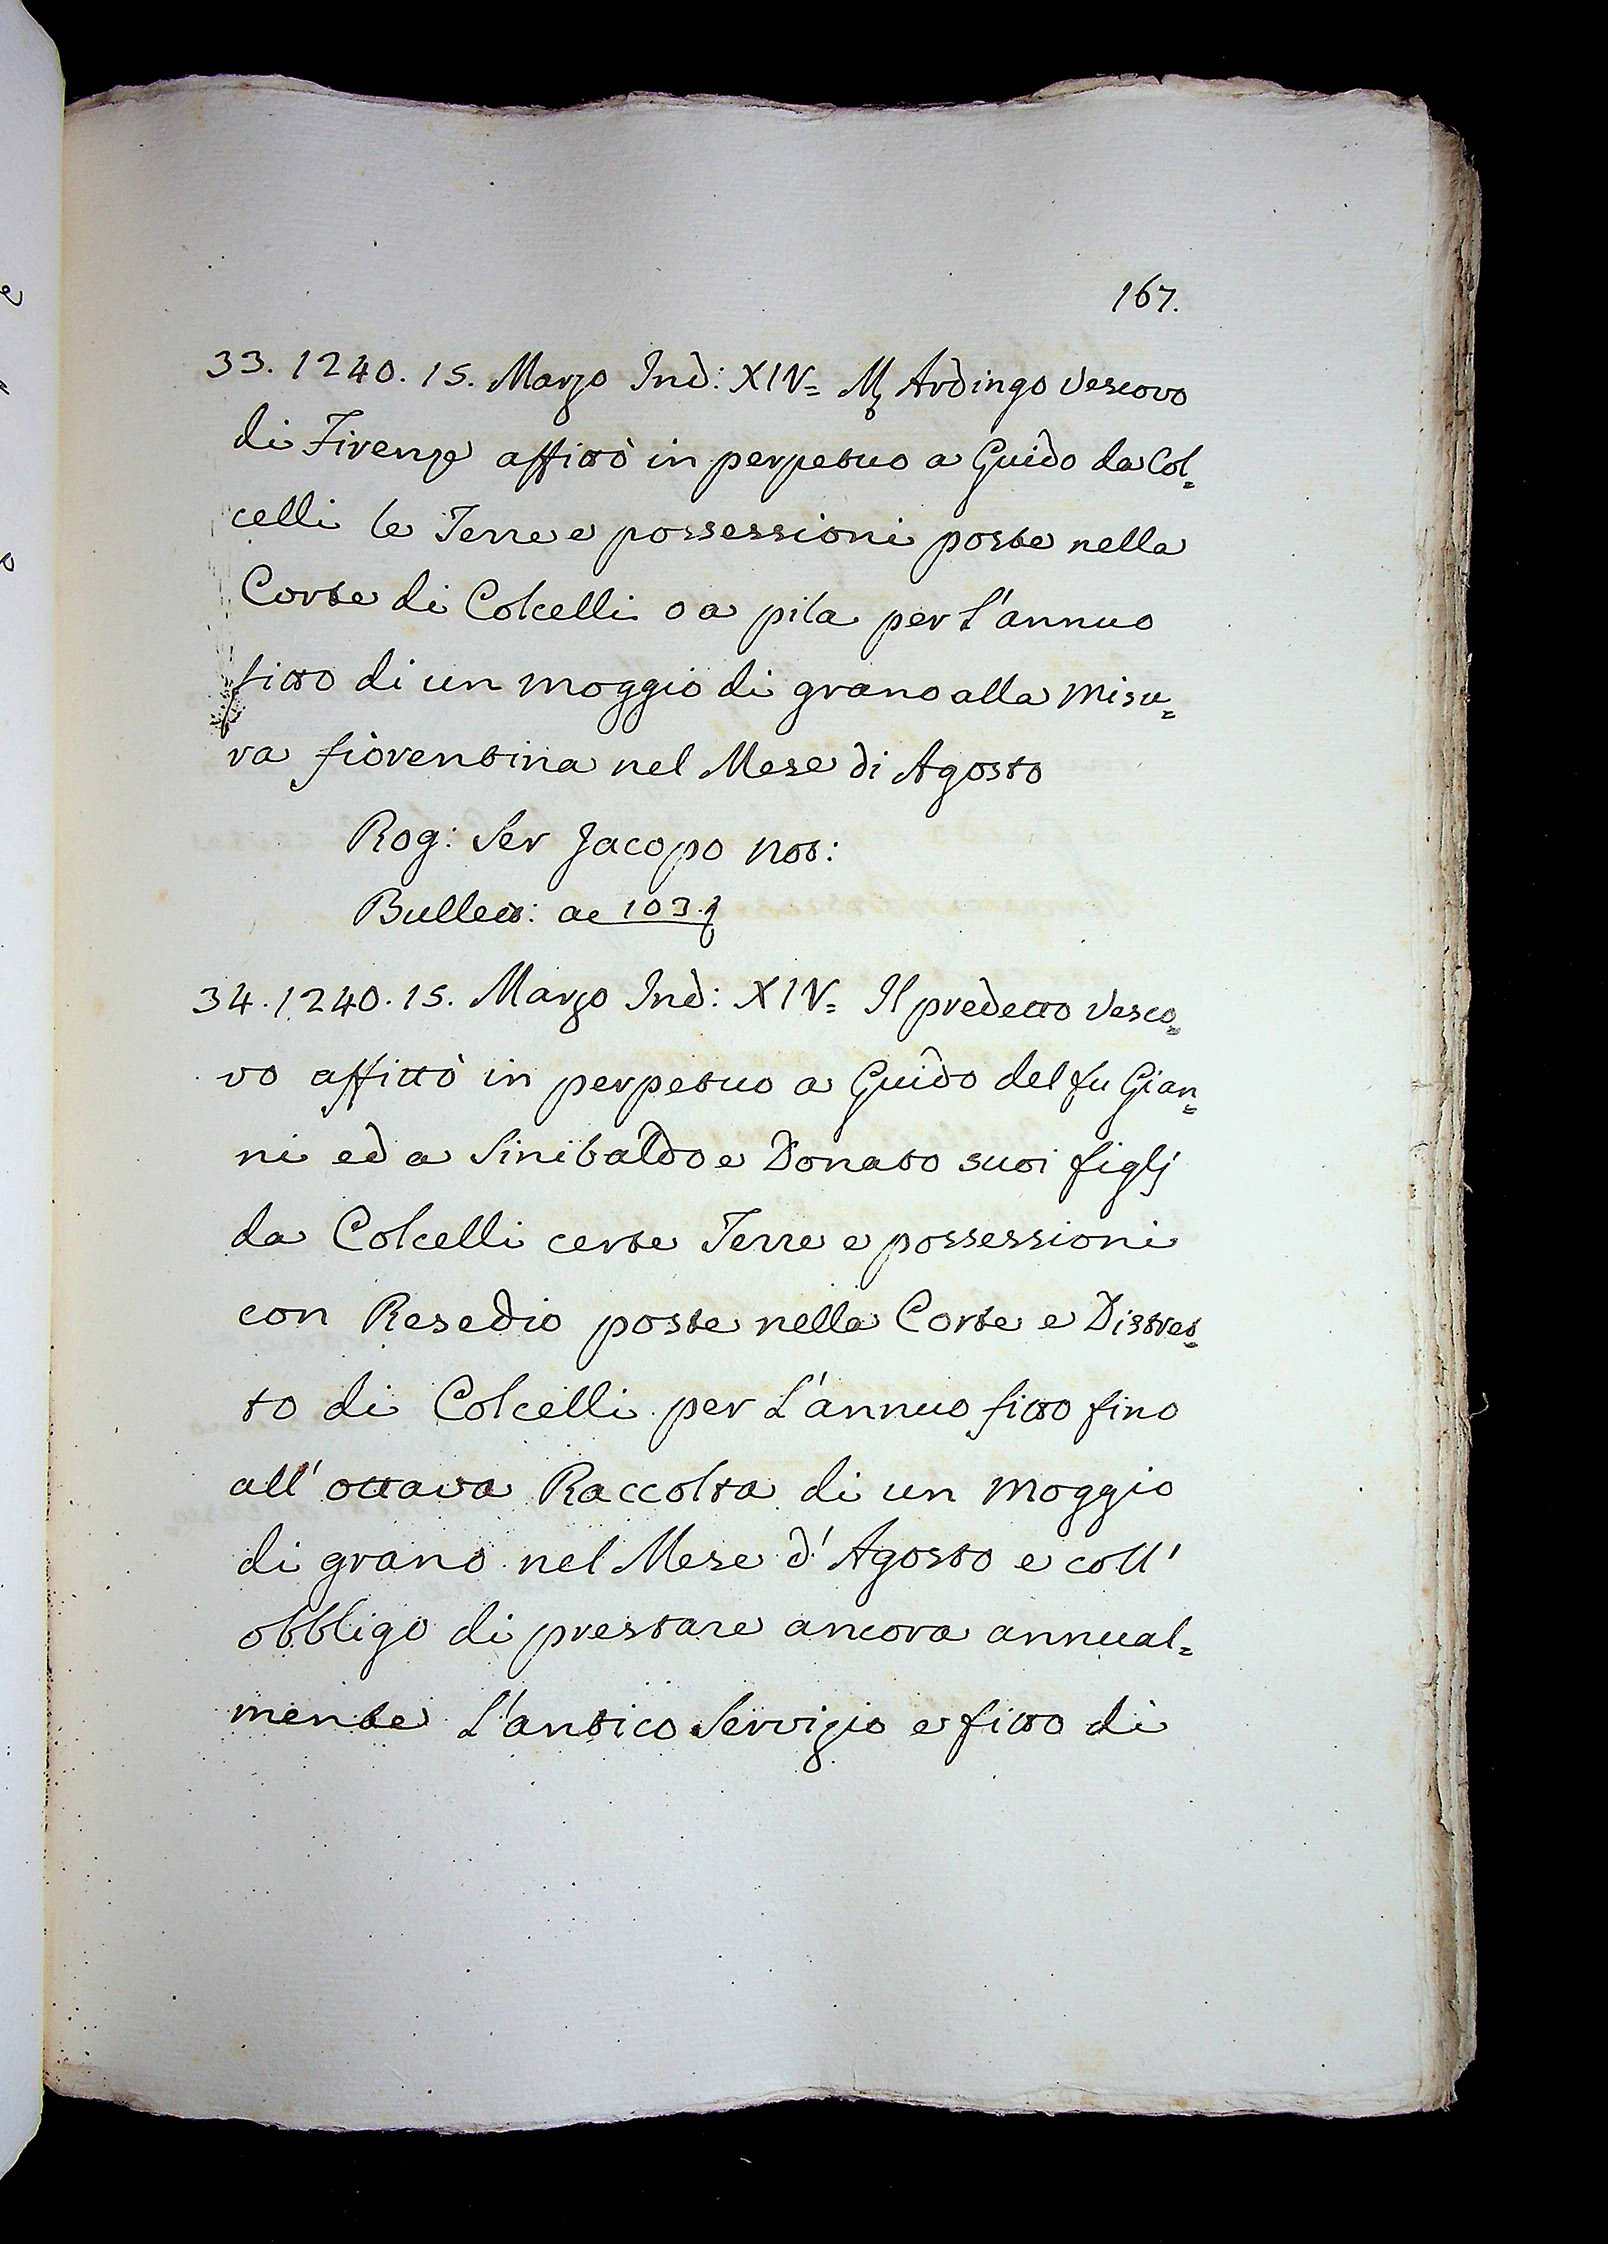 167.
33. 1240. 15. Marzo Ind: XIV= M Ardingo Vescovo
di Firenze affittò in perpetuo a Guido da Col=
celli le Terre e possessioni poste nella
Corte di Colcelli o a pila per L'annuo
fitto di un moggio di grano alla misu=
ra fiorentina nel Mese di Agosto
Rog: Ser Jacopo not:
Bullett: ac 103.
34. 1240. 15. Marzo Ind: XIV= Il predetto Vesco=
vo affittò in perpetuo a Guido del fu Gian=
ni ed a Sinibaldo e Donato suoi figlj
da Colcelli certe Terre e possessioni
con Resedio poste nella Corte e Distret=
to di Colcelli per L'annuo fitto fino
all' ottava Raccolta di un moggio
di grano nel Mese d'Agosto e coll'
obbligo di prestare ancora annual=
mente L'antico Servizio e fitto di